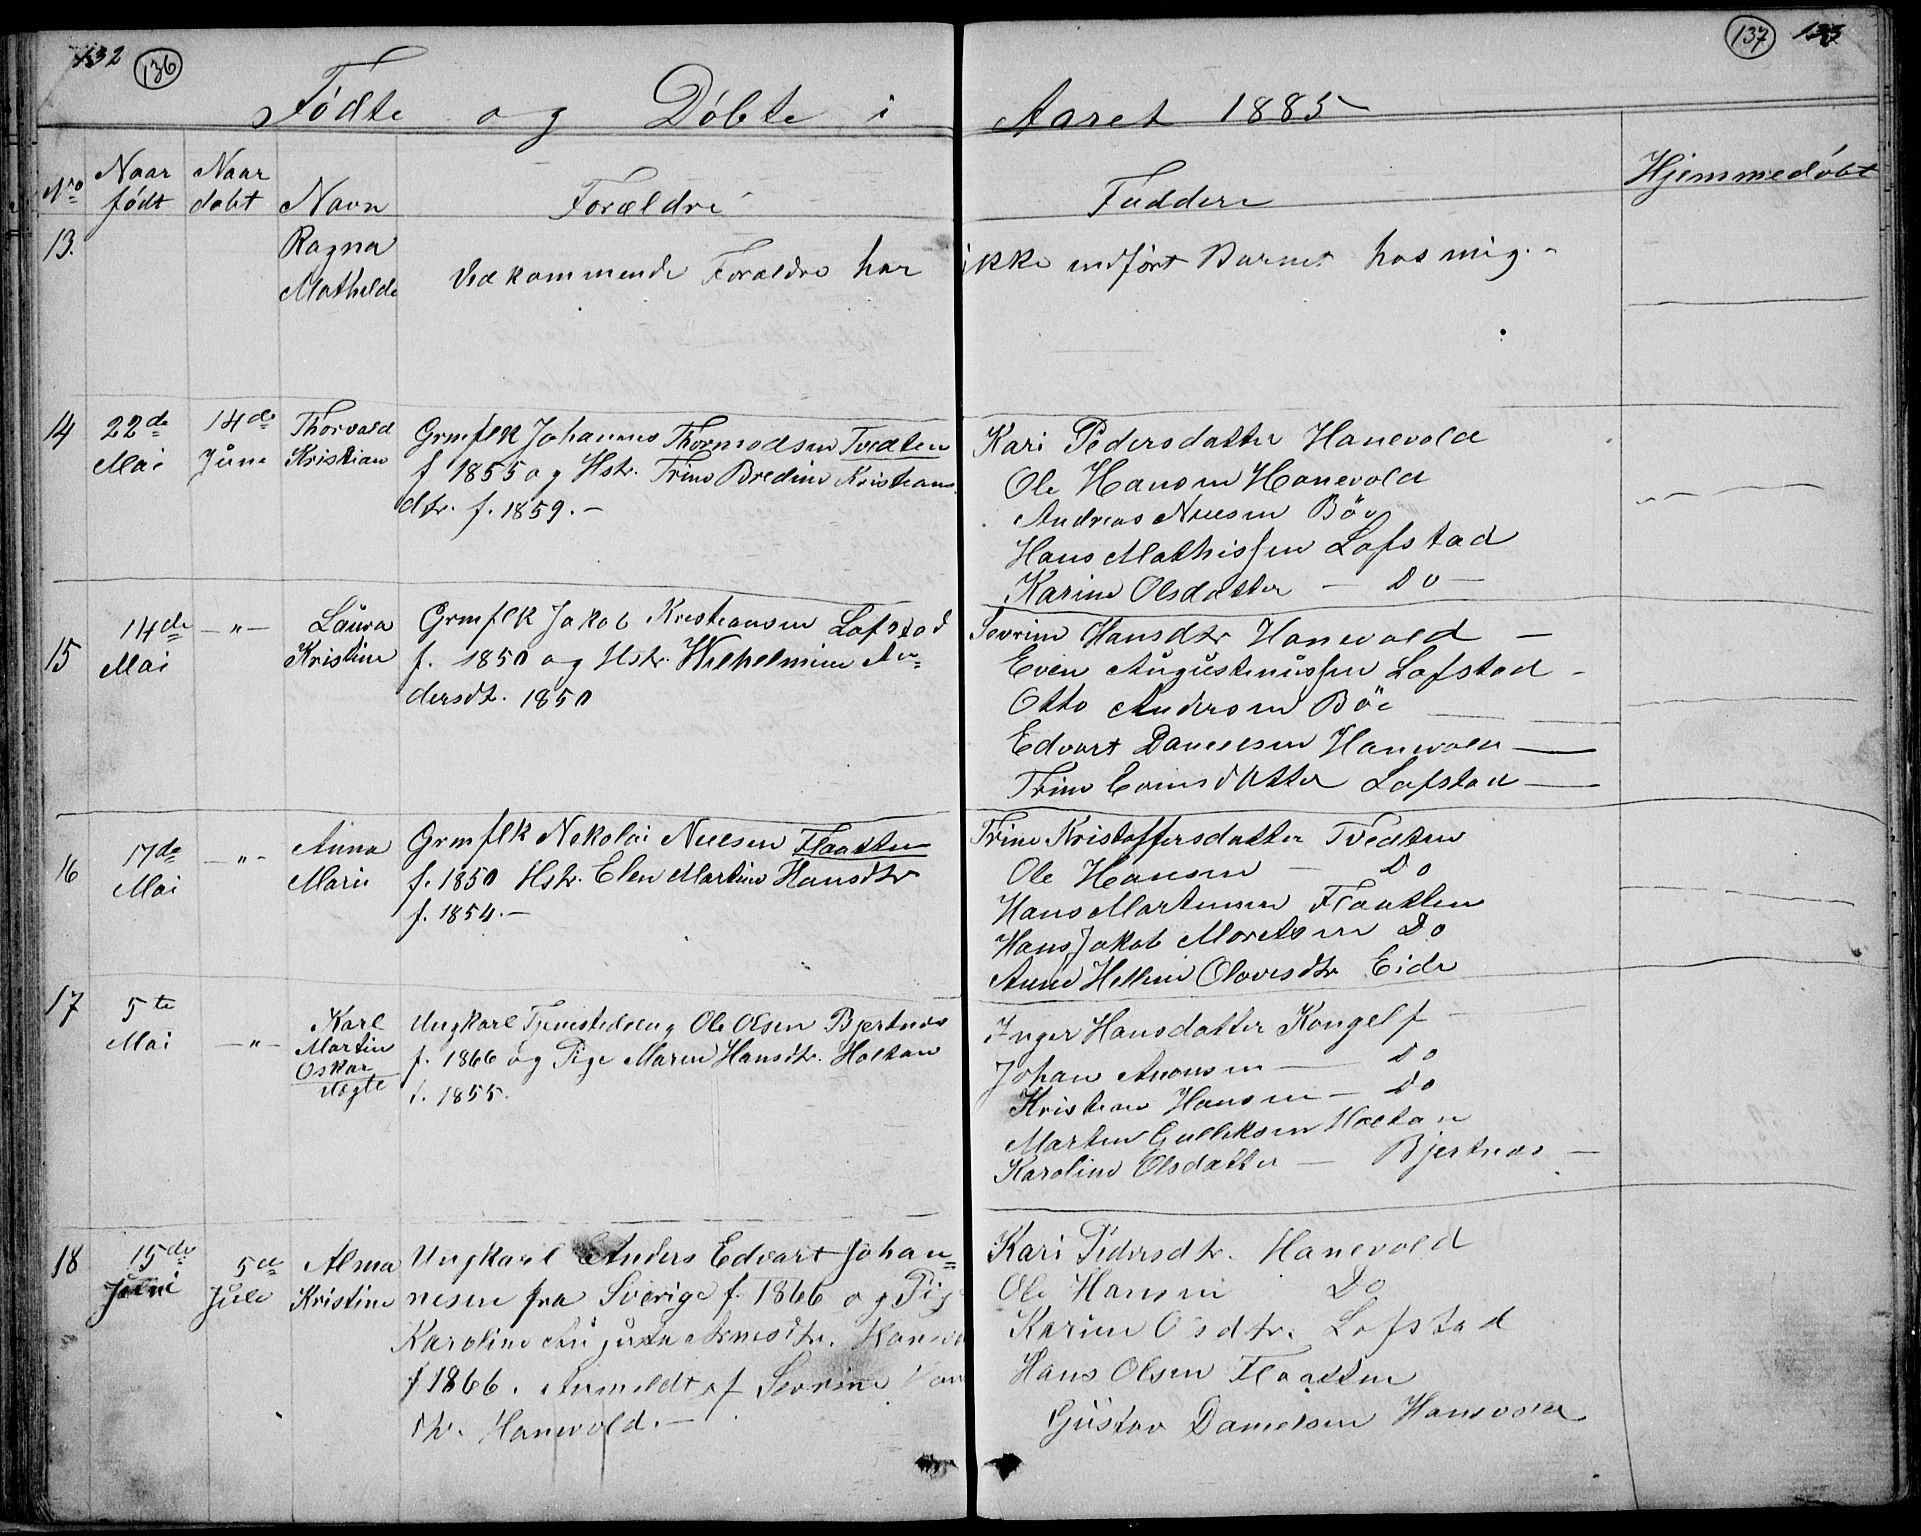 132 136
137 133
Fødte og Døbte i Aaret 1885
No Naar født Naar døbt Navn Forældre Faddere Hjemmedøbt
13. Ragna
Mathilde
Vedkommende Forældre har ikke indført Barnet hos mig. -
14 22de Mai 14de Juni
Thorvald
Kristian
Grmflk Johannes Thormodsen Tvedten
f 1855 og Hstr. Trine Bredine Kristians
dtr. f. 1859. -
Kari Pedersdatter Hanevold
Ole Hansen Hanevold
Andreas Nielsen Böe
Hans Mathissen Lofstad
Karine Olsdatter - Do -
15 14de Mai - " -
Laura
Kristine
Grmflk Jakob Kristiansen Lofstad
f. 1850 og Hstr. Wilhelmine An=
dersdt. 1850
Sevrine Hansdtr Hanevold -
Even Augustinussen Lofstad -
Otto Andersen Böe
Edvart Danielsen Hanevold -
Trine Evensdatter Lofstad -
16 17de Mai - " -
Anna
Marie
Grmflk Nekolai Nielsen Flaatten
f. 1850 Hstr. Elen Martine Hansdtr
f. 1854. -
Trine Kristoffersdatter Tvedten
Ole Hansen - Do
Hans Martinsen Flaatten
Hans Jakob Moretsen Do
Anne Helline Olavesdtr Eide
17 5te Mai - " -
Karl
Martin
Oskar
Uægte
Ungkarl Tjenestedreng Ole Olsen Bjertnæs
f. 1866 og Pige Maren Hansdtr. Holtan
f. 1855.
Inger Hansdatter Kongelf -
Johan Aronsen - Do
Kristian Hansen - Do
Martin Gulliksen Holtan
Karoline Olsdatter - Bjertnæs -
18 15de Juni 5te Juli
Alma
Kristine
Ungkarl Anders Edvart Johan=
nesen fra Sverige f. 1866 og Pig
Karoline Augusta Arnesdtr. Hanevo
f 1866. Anmeldt af Sevrine Han
dtr. Hanevold. -
Kari Pedersdtr. Hanevold
Ole Hansen Do
Karine Olsdtr. Lofstad
Hans Olsen Flaatten
Gustav Danielsen Hanevold